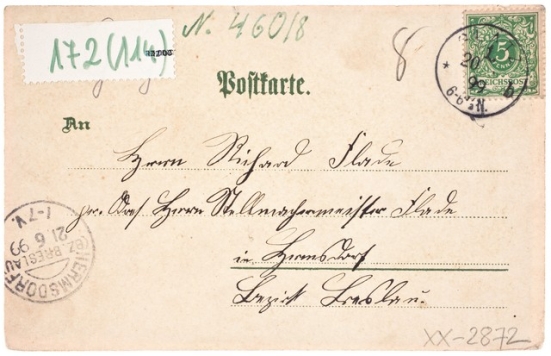 172 (114)
N. 460/8
8
Postkarte.
5
REICHSPOST
* 20
99 b
6-6½N.
An
Herrn Richard Flade
Herrn Stellmachermeister Flade
in Hermsdorf
Bezirk Breslau.
HERMSDORF
(BZ. BRESLAU)
21.6.99
1-7V.
XX-2872